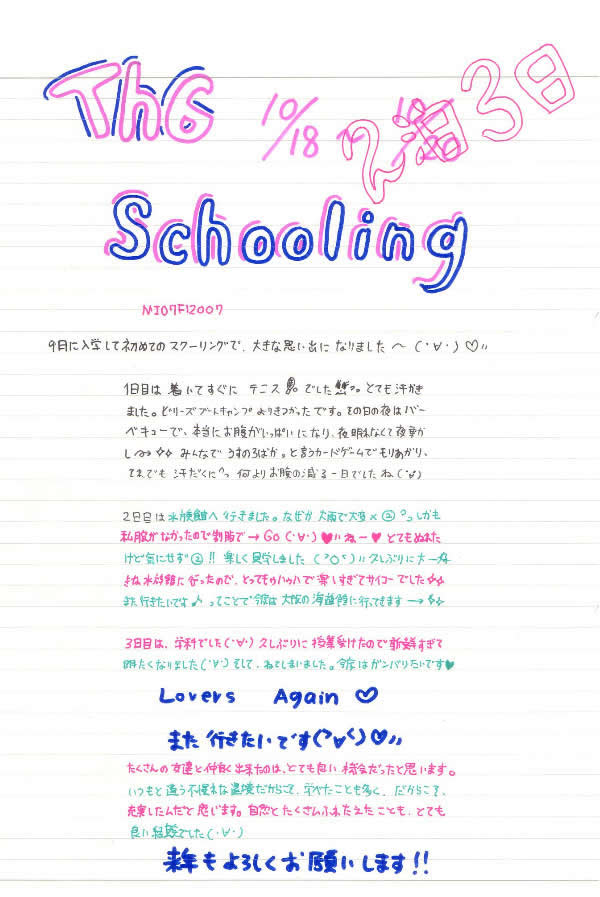 The 10/18 〜 10/20 2泊3日
Schooling
NI07F12007
9月に入学して初めてのスクーリングで、大きな思い出になりました〜(・∀・)♡〃
1日目は着いてすぐにテニスでした。とても汗かき
ました。ビリーズブートキャンプよりきつかったです。その日の夜はバー
ベキューで、本当にお腹がいっぱいになり、夜眠れなくて夜更か
し→☆☆ みんなでうすのろばか。と言うカードゲームでもりあがり、
それでも汗だくに 何よりお腹の減る一日でしたね(・∀・)
2日目は水族館へ行きました。なぜか大阪で大変×② しかも
私服がなかったので制服で→Go(・∀・)♥〃ねー♥ とてもぬれた
けど気にせず②!! 楽しく見学しました 久しぶりに大一
きな水族館に行ったので、とってもハゥハゥで楽しすぎてサイコーでした☆☆
また行きたいです♪ってことで今度は大阪の海遊館に行ってきます→☆☆
3日目は、学科でした(・∀・)久しぶりに授業受けたので新鮮すぎて
眠たくなりました(・∀・)そして、ねてしまいました。今度はガンバりたいです♥
Lovers Again ♡
また行きたいです(^∀<)♡〃
たくさんの友達と仲良く出来たのは、とても良い機会だったと思います。
いつもと違う不慣れな環境だからこそ、学べたことも多く、だからこそ、
充実したんだと感じます。自然とたくさんふれあえたことも、とても
良い経験でした(・∀・)
来年もよろしくお願いします!!